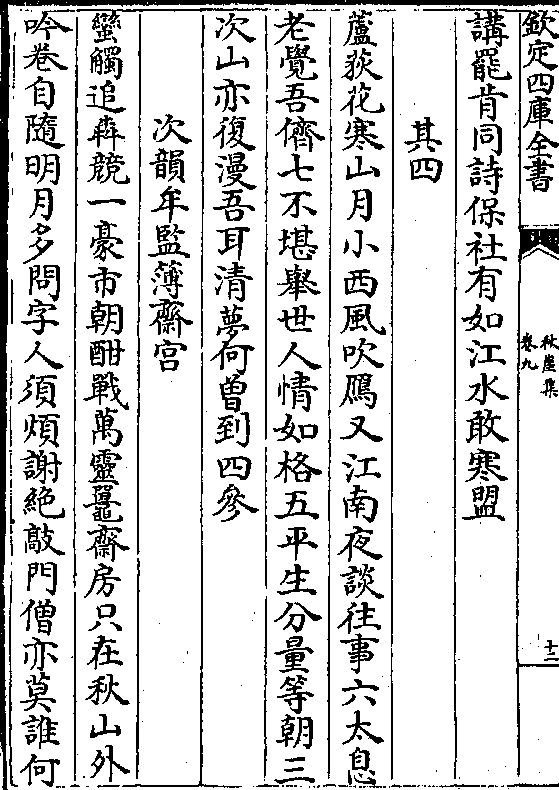 欽定四庫全書
秋崖集
卷九
十二
講罷肯同詩保社有如江水敢寒盟
其四
蘆荻花寒山月小西風吹鴈又江南夜談往事六太息
老覺吾儕七不堪舉世人情如格五平生分量等朝三
次山亦復漫吾耳清夢何曾到四參
次韻牟監簿齋宮
蠻觸追犇競一豪市朝酣戰萬靈鼉齋房只在秋山外
吟卷自隨明月多問字人須煩謝絶敲門僧亦莫誰何